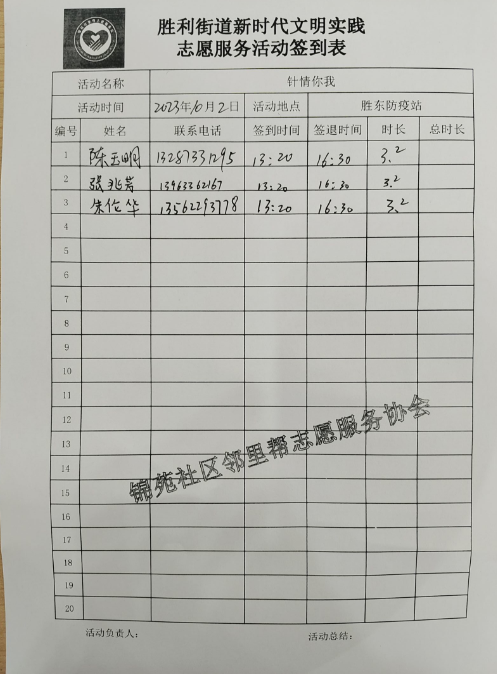 胜利街道新时代文明实践
志愿服务活动签到表
活动名称 针情你我
活动时间 2023年10月2日 活动地点 胜东防疫站
编号 姓名 联系电话 签到时间 签退时间 时长 总时长
1 陈玉明 13287331295 13:20 16:30 3.2
2 张兆岩 13963362167 13:20 16:30 3.2
3 朱伦华 13562293778 13:20 16:30 3.2
4
5
6
7
8
9
10
11
12
13
14
15
16
17
18
19
20
锦苑社区邻里帮志愿服务协会
活动负责人： 活动总结：